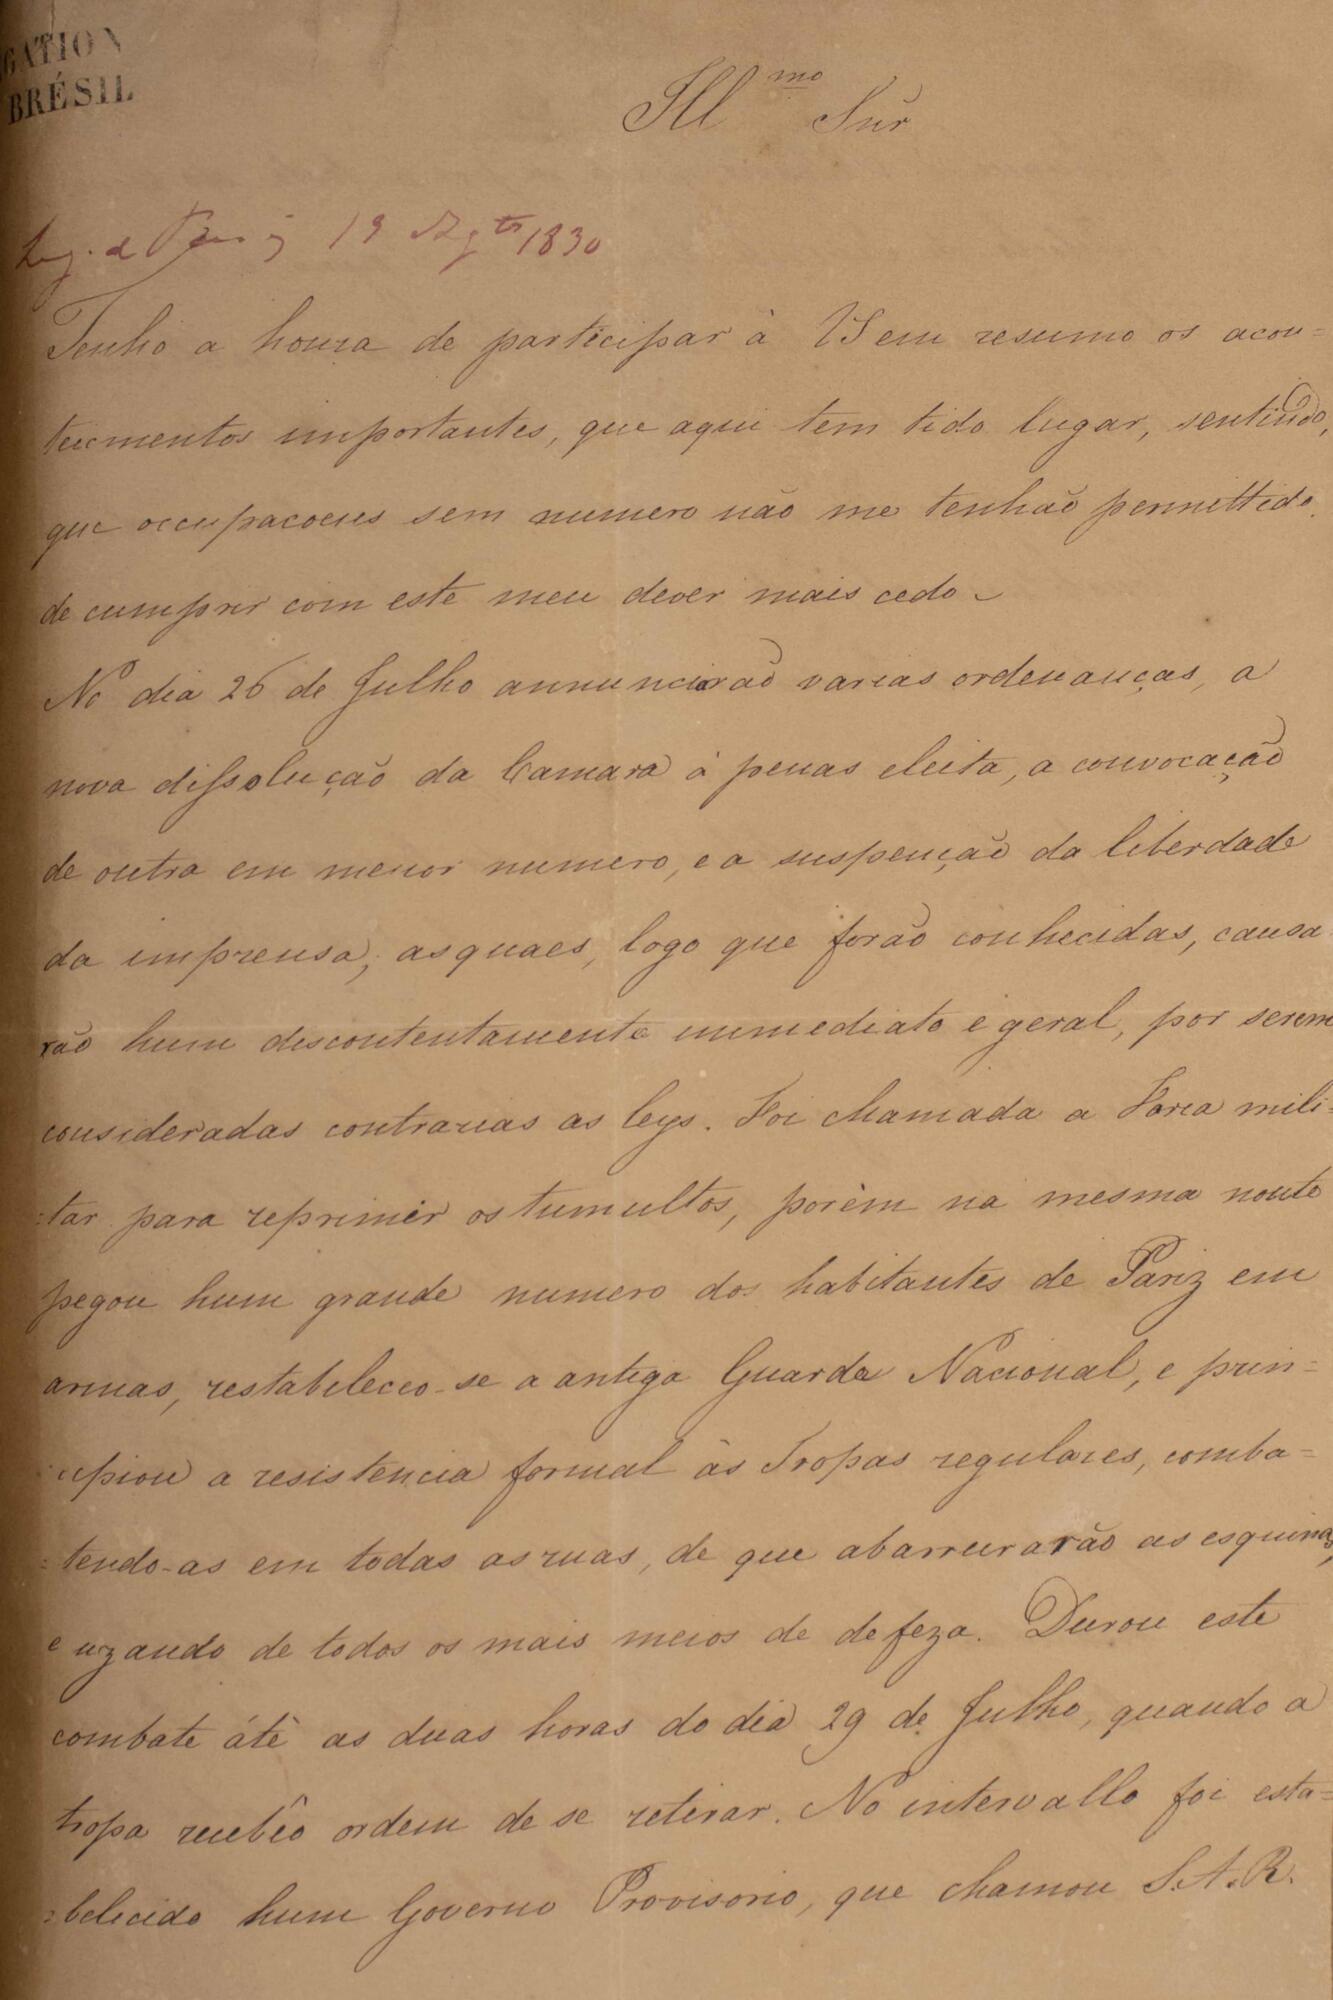 GATION
BRÉSIL
Ill.mo Snr
Leg. de Pariz 19 Agto 1830
Tenho a honra de participar à VS em resumo os acon=
tecimentos importantes, que aqui tem tido lugar, sentindo,
que occupacoens sem numero não me tenhão permittido
de cumprir com este meu dever mais cedo.
No dia 26 de Julho annunciarão varias ordenanças, a
nova dissolução da Camara à penas eleita, a convocação
de outra em menor numero, e a suspenção da liberdade
da imprensa; as quaes, logo que forão conhecidas, causa
rão hum descontentamento immediato e geral, por serem
consideradas contrarias as leys. Foi chamada a Forca mili=
=tar para reprimir os tumultos, porèm na mesma noute
pegou hum grande numero dos habitantes de Pariz em
armas, restabeleceo-se a antiga Guarda Nacional, e prin=
cipiou a resistencia formal às Tropas regulares, comba=
=tendo-as em todas as ruas, de que abarreirarão as esquinas,
e uzando de todos os mais meios de defeza. Durou este
combate átè as duas horas do dia 29 de Julho, quando a
tropa recebêo ordem de se retirar. No intervallo foi esta=
=belecido hum Governo Provisorio, que chamou S.A.R.